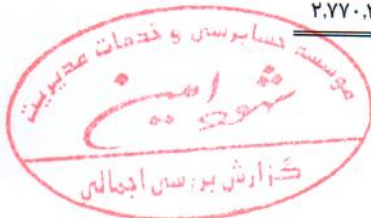 ۲,۷۷۰,۲
موسسه حسابرسی و خدمات مدیریت
شهود امین
گزارش بررسی اجمالی